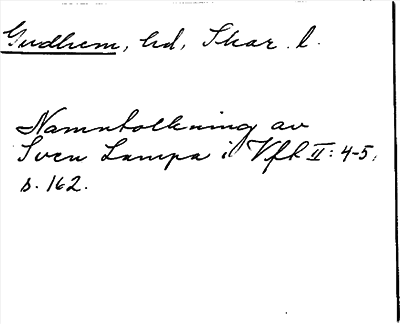 Gudhem, hd, Skar. l.
Namntolkning av
Sven Lampa i Vfl II: 4-5,
s. 162.